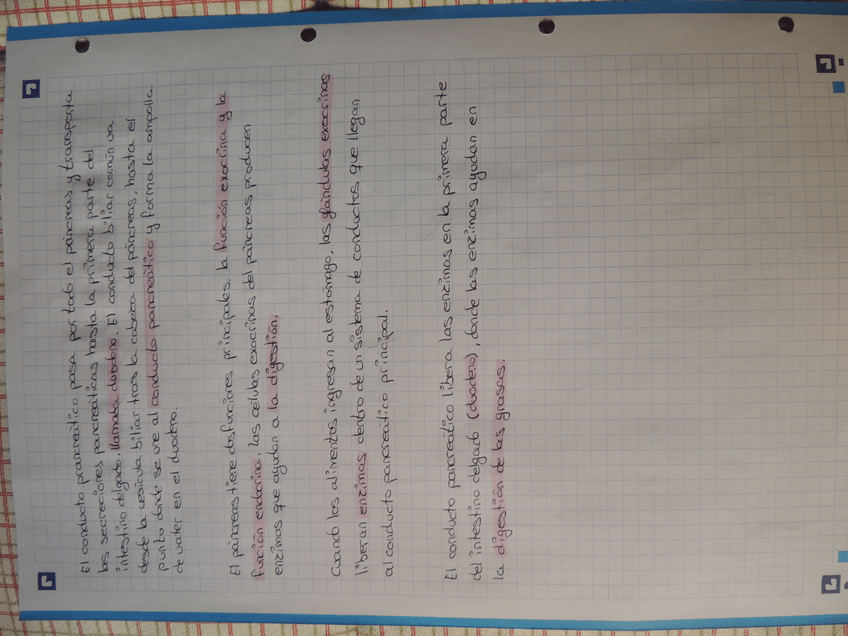 El conducto prancreático pasa por todo el páncreas y transporta
las secreciones pancreáticas hasta la primera parte del
intestino delgado, llamada duodeno. El conducto biliar común va
desde la vesícula biliar tras la cabeza del páncreas, hasta el
punto donde se une al conducto pancreático y forma la ampolla
de vater en el duodeno.
El páncreas tiene dos funciones principales, la función exocrina y la
función endocrina. Las células exocrinas del páncreas producen
enzimas que ayudan a la digestión.
Cuando los alimentos ingresan al estómago, las glándulas exocrinas
liberan enzimas dentro de un sistema de conductos que llegan
al conducto pancreático principal.
El conducto pancreático libera las enzimas en la primera parte
del intestino delgado (duodeno), donde las enzimas ayudan en
la digestión de las grasas.